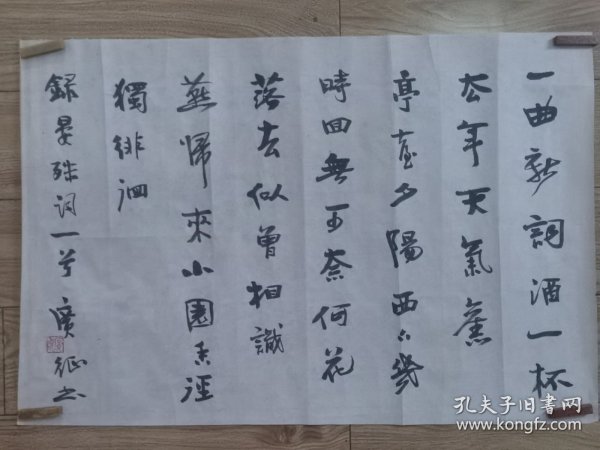 一曲新詞酒一杯
去年天氣舊
亭臺夕陽西下幾
時回無可奈何花
落去似曾相識
燕歸來小園香徑
獨徘徊
錄晏殊词一首 廣征书
孔夫子旧书网
www.kongfz.com